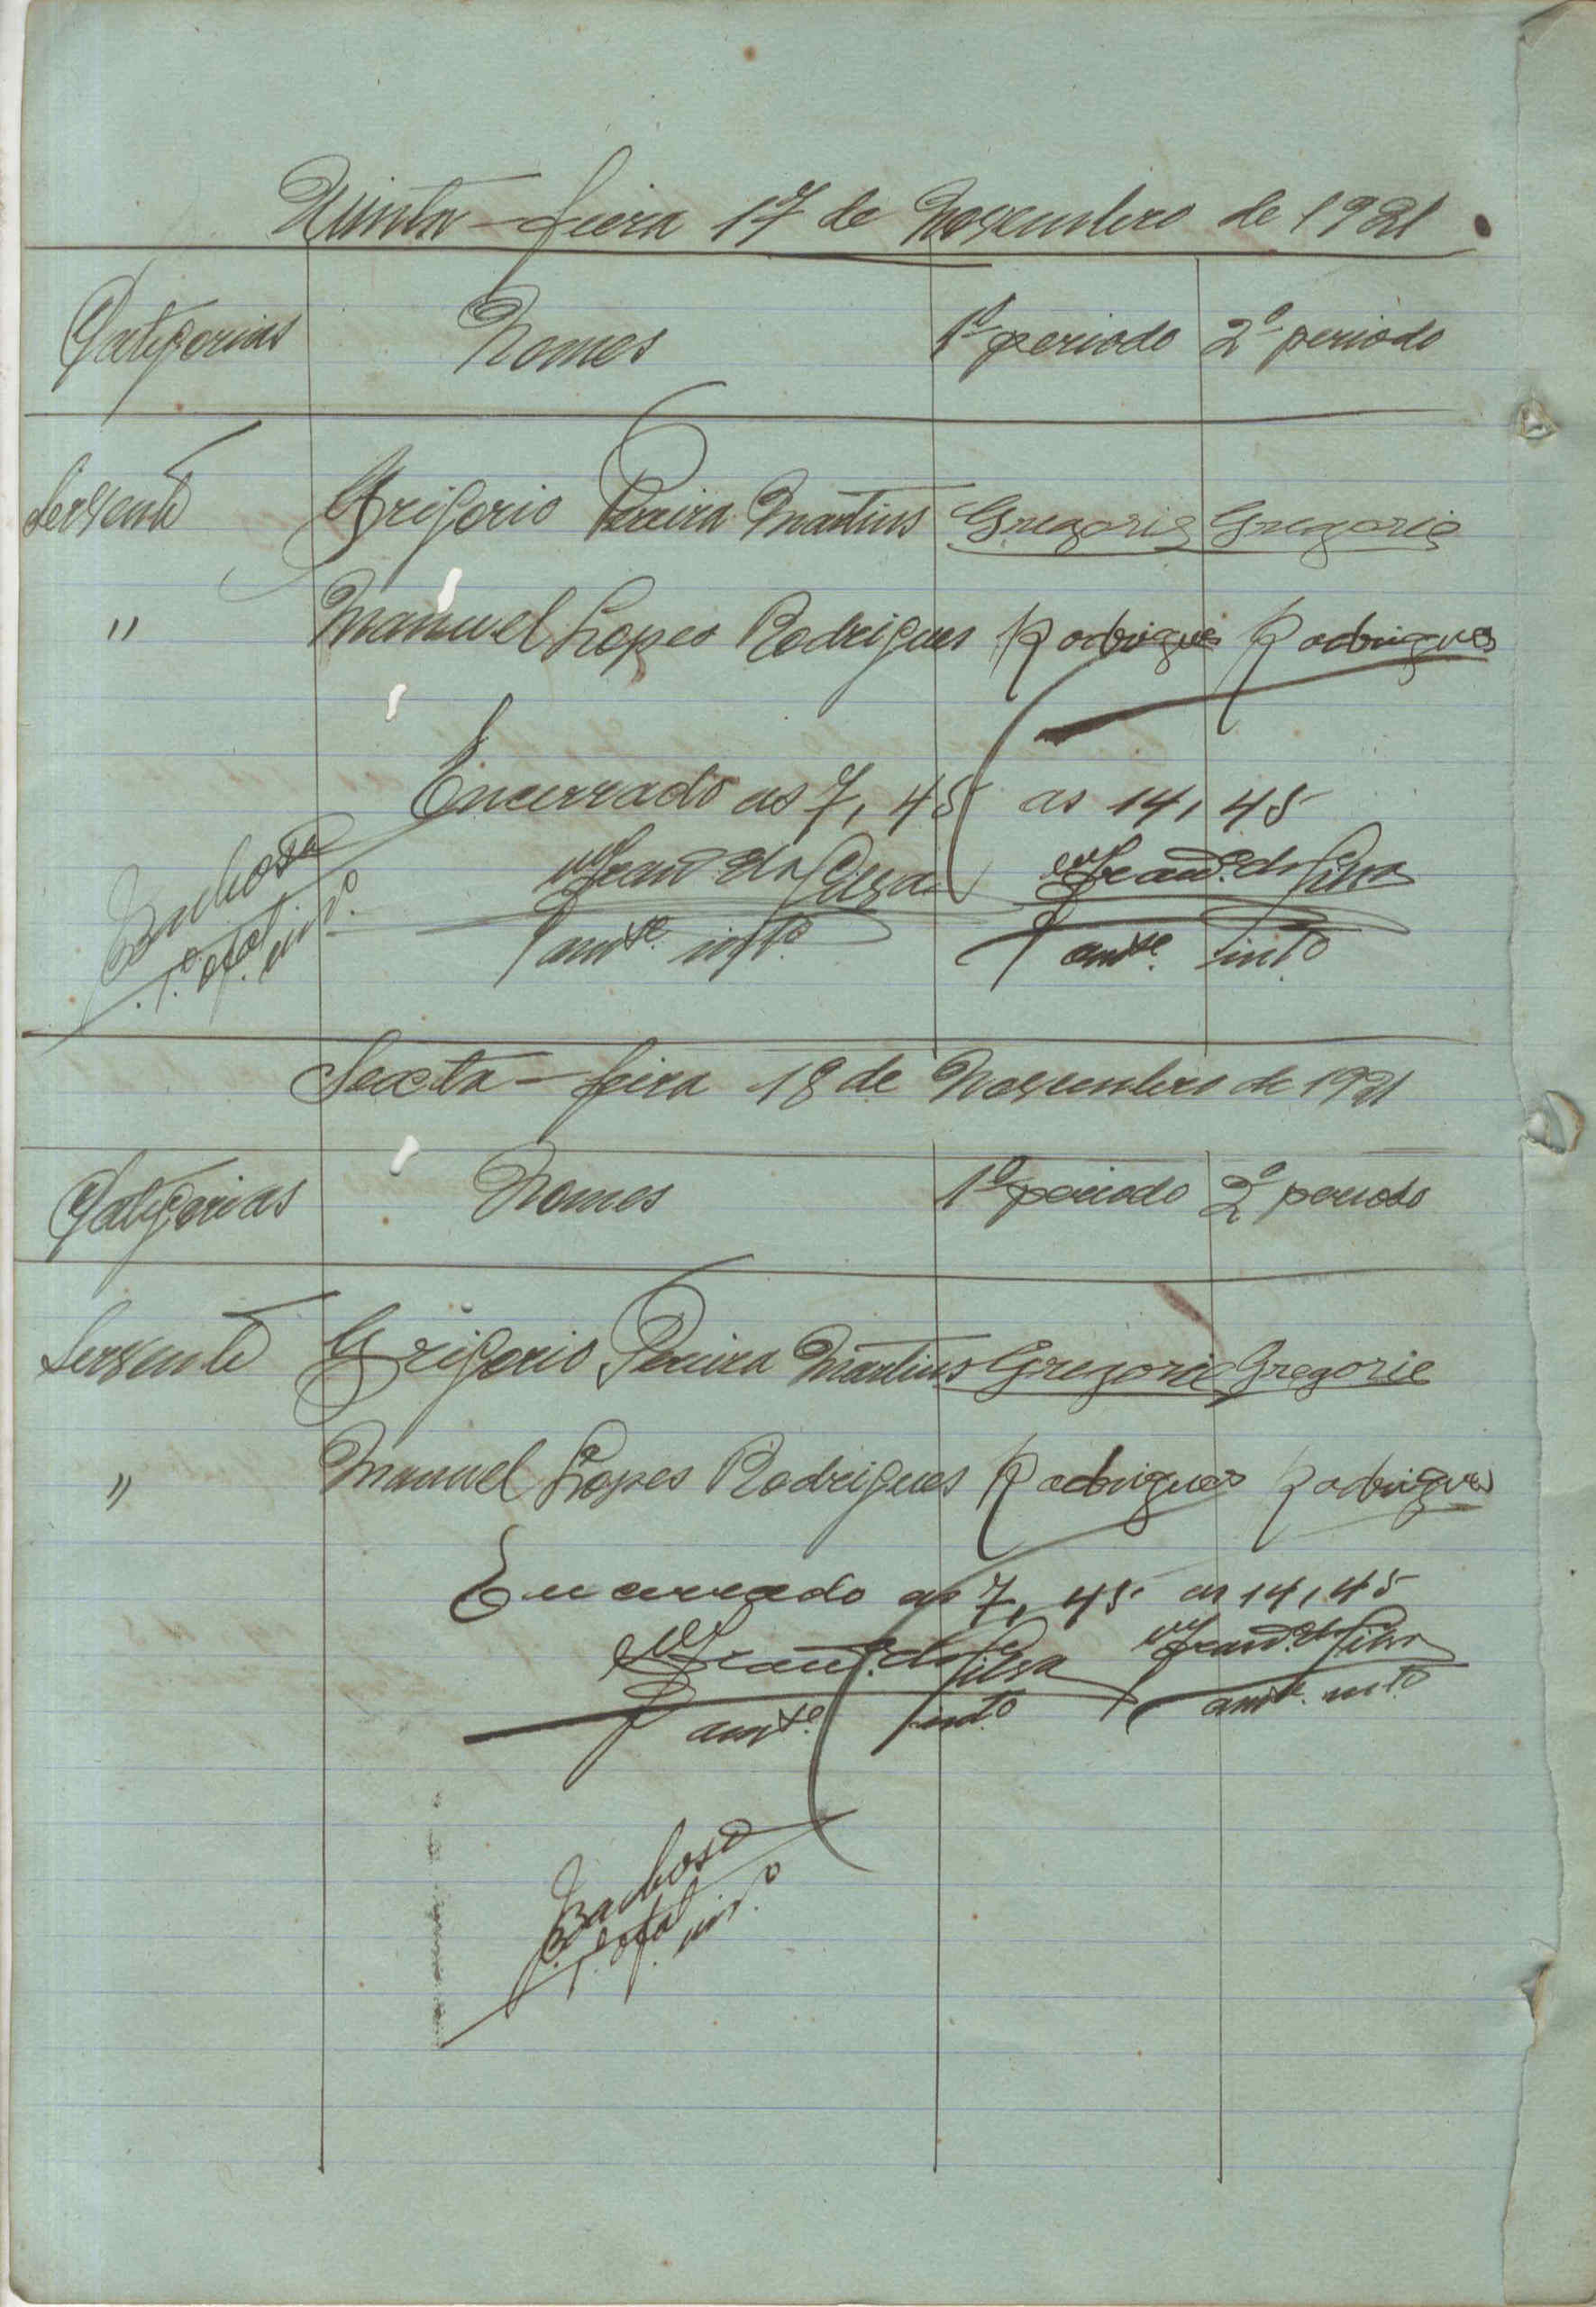 Quinta-feira 17 de Novembro de 1921.
Categorias Nomes 1º periodo 2º periodo
Servente Grigorio Pereira Martins Gregorio Gregorio
" Manuel Lopes Rodrigues Rodrigues Rodrigues
Encerrado as 7,45 as 14,45
da Silva da Silva
amte. into. amte. into.
Barbosa
1º. ofal. into.
Sexta-feira 18 de Novembro de 1921
Categorias Nomes 1º periodo 2º periodo
Servente Grigorio Pereira Martins Gregorio Gregorio
" Manuel Lopes Rodrigues Rodrigues Rodrigues
Encerrado as 7,45 as 14,45
da Silva da Silva
amte. into. amte. into.
Barbosa
1º. ofal. into.